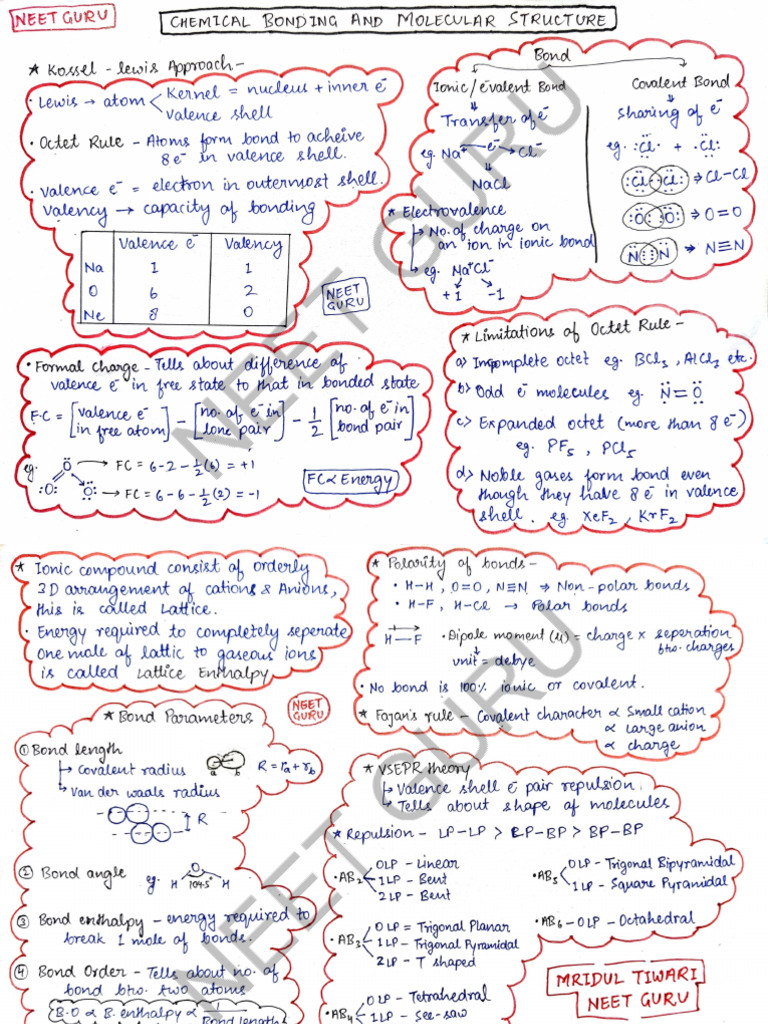 NEET GURU
CHEMICAL BONDING AND MOLECULAR STRUCTURE
★ Kossel-lewis Approach -
• Lewis → atom < Kernel = nucleus + inner e⁻
Valence shell
• Octet Rule - Atoms form bond to acheive
8 e⁻ in valence shell.
• valence e⁻ = electron in outermost shell.
Valency → capacity of bonding
Valence e⁻ Valency
Na 1 1
O 6 2
Ne 8 0
NEET
GURU
Bond
Ionic/e⁻valent Bond
Transfer of e⁻
eg. Na⁺ e⁻→ Cl⁻
NaCl
★ Electrovalence
↳ No. of charge on
an ion in ionic bond
↳ eg. Na⁺Cl⁻
+1 -1
Covalent Bond
Sharing of e⁻
eg. :Cl· + ·Cl:
:Cl : Cl: → Cl-Cl
:O :: O: → O=O
N ⋮⋮ N → N≡N
• Formal charge - Tells about difference of
valence e⁻ in free state to that in bonded state
F.C = [valence e⁻ in free atom] - [no. of e⁻ in lone pair] - 1/2 [no. of e⁻ in bond pair]
eg. O → FC = 6-2-1/2(6) = +1
:O: O: → FC = 6-6-1/2(2) = -1
FC ∝ Energy
★ Limitations of Octet Rule -
a) Incomplete octet eg. BCl₃, AlCl₃ etc.
b) Odd e⁻ molecules eg. N=O
c) Expanded octet (more than 8 e⁻)
eg. PF₅, PCl₅
d) Noble gases form bond even
though they have 8 e⁻ in valence
shell. eg. XeF₂, KrF₂
★ Ionic compound consist of orderly
3D arrangement of cations & Anions,
this is called Lattice.
• Energy required to completely seperate
One mole of lattic to gaseous ions
is called Lattice Enthalpy
★ Polarity of bonds -
• H-H, O=O, N≡N ⇒ Non-polar bonds
• H-F, H-Cl → Polar bonds
H—F • Dipole moment (μ) = charge × seperation
btw. charges
unit = debye
• No bond is 100% ionic or covalent.
★ Fajan's rule - Covalent character ∝ Small cation
∝ Large anion
∝ charge
★ Bond Parameters
NEET
GURU
① Bond length
↳ Covalent radius
a b R = rₐ + r_b
↳ Van der waals radius
R
② Bond angle
eg. H O H 104.5°
③ Bond enthalpy - energy required to
break 1 mole of bonds.
④ Bond Order - Tells about no. of
bond btw. two atoms
B.O ∝ B. enthalpy ∝ 1/Bond length
★ VSEPR theory
↳ Valence shell e⁻ pair repulsion.
↳ Tells about shape of molecules
★ Repulsion - LP-LP > LP-BP > BP-BP
• AB₂ 0LP - Linear
1LP - Bent
2LP - Bent
• AB₃ 0LP = Trigonal Planar
1LP - Trigonal Pyramidal
2LP - T shaped
• AB₄ 0LP - Tetrahedral
1LP - See-saw
• AB₅ 0LP - Trigonal Bipyramidal
1LP - Square Pyramidal
• AB₆ - 0LP - Octahedral
MRIDUL TIWARI
NEET GURU
NEET GURU
NEET GURU